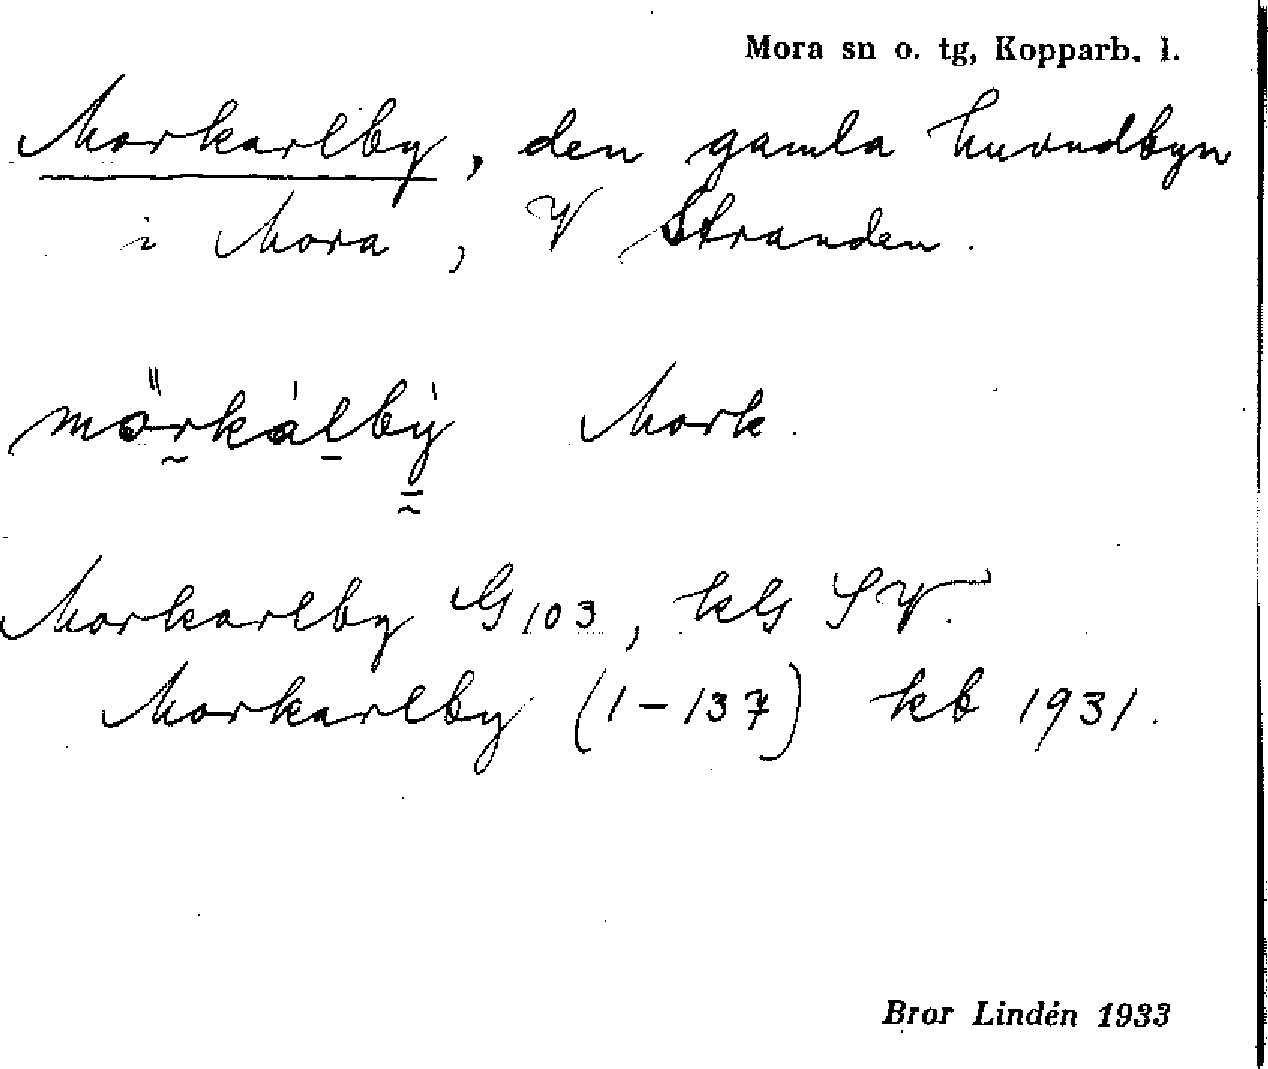 Mora sn o. tg, Kopparb. l.
Morkarlby, den gamla huvudbyn
i Mora, V Stranden.
mòrkàlby̌ Mork.
Morkarlby G 103, kG SV.
Morkarlby (1-137) kb 1931.
Bror Lindén 1933